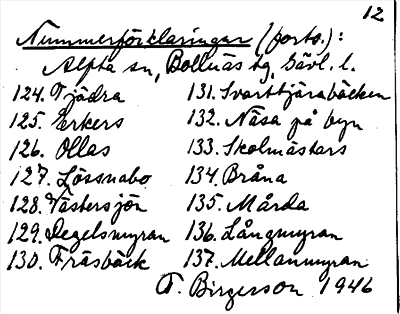 12
Nummerförklaringar (forts.):
Alfta sn, Bollnäs tg, Gävl. l.
124. Tjädra 131. Svarttjärabäcken
125. Erkers 132. Näsa på byn
126. Ollas 133. Skolmästars
127. Lössnabo 134. Bråna
128. Västersjön 135. Mårda
129. Degelsmyran 136. Långmyran
130. Fräsbäck 137. Mellanmyran
F. Birgerson 1946